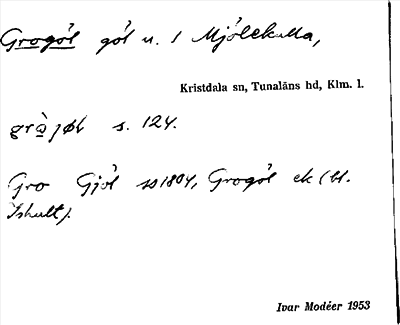 Grogöl göl n. I Mjölekulla,
Kristdala sn, Tunaläns hd, Klm. l.
s. 124.
Gro Gjöl ss1804, Grogöl ek (bl.
Ishult).
Ivar Modéer 1953